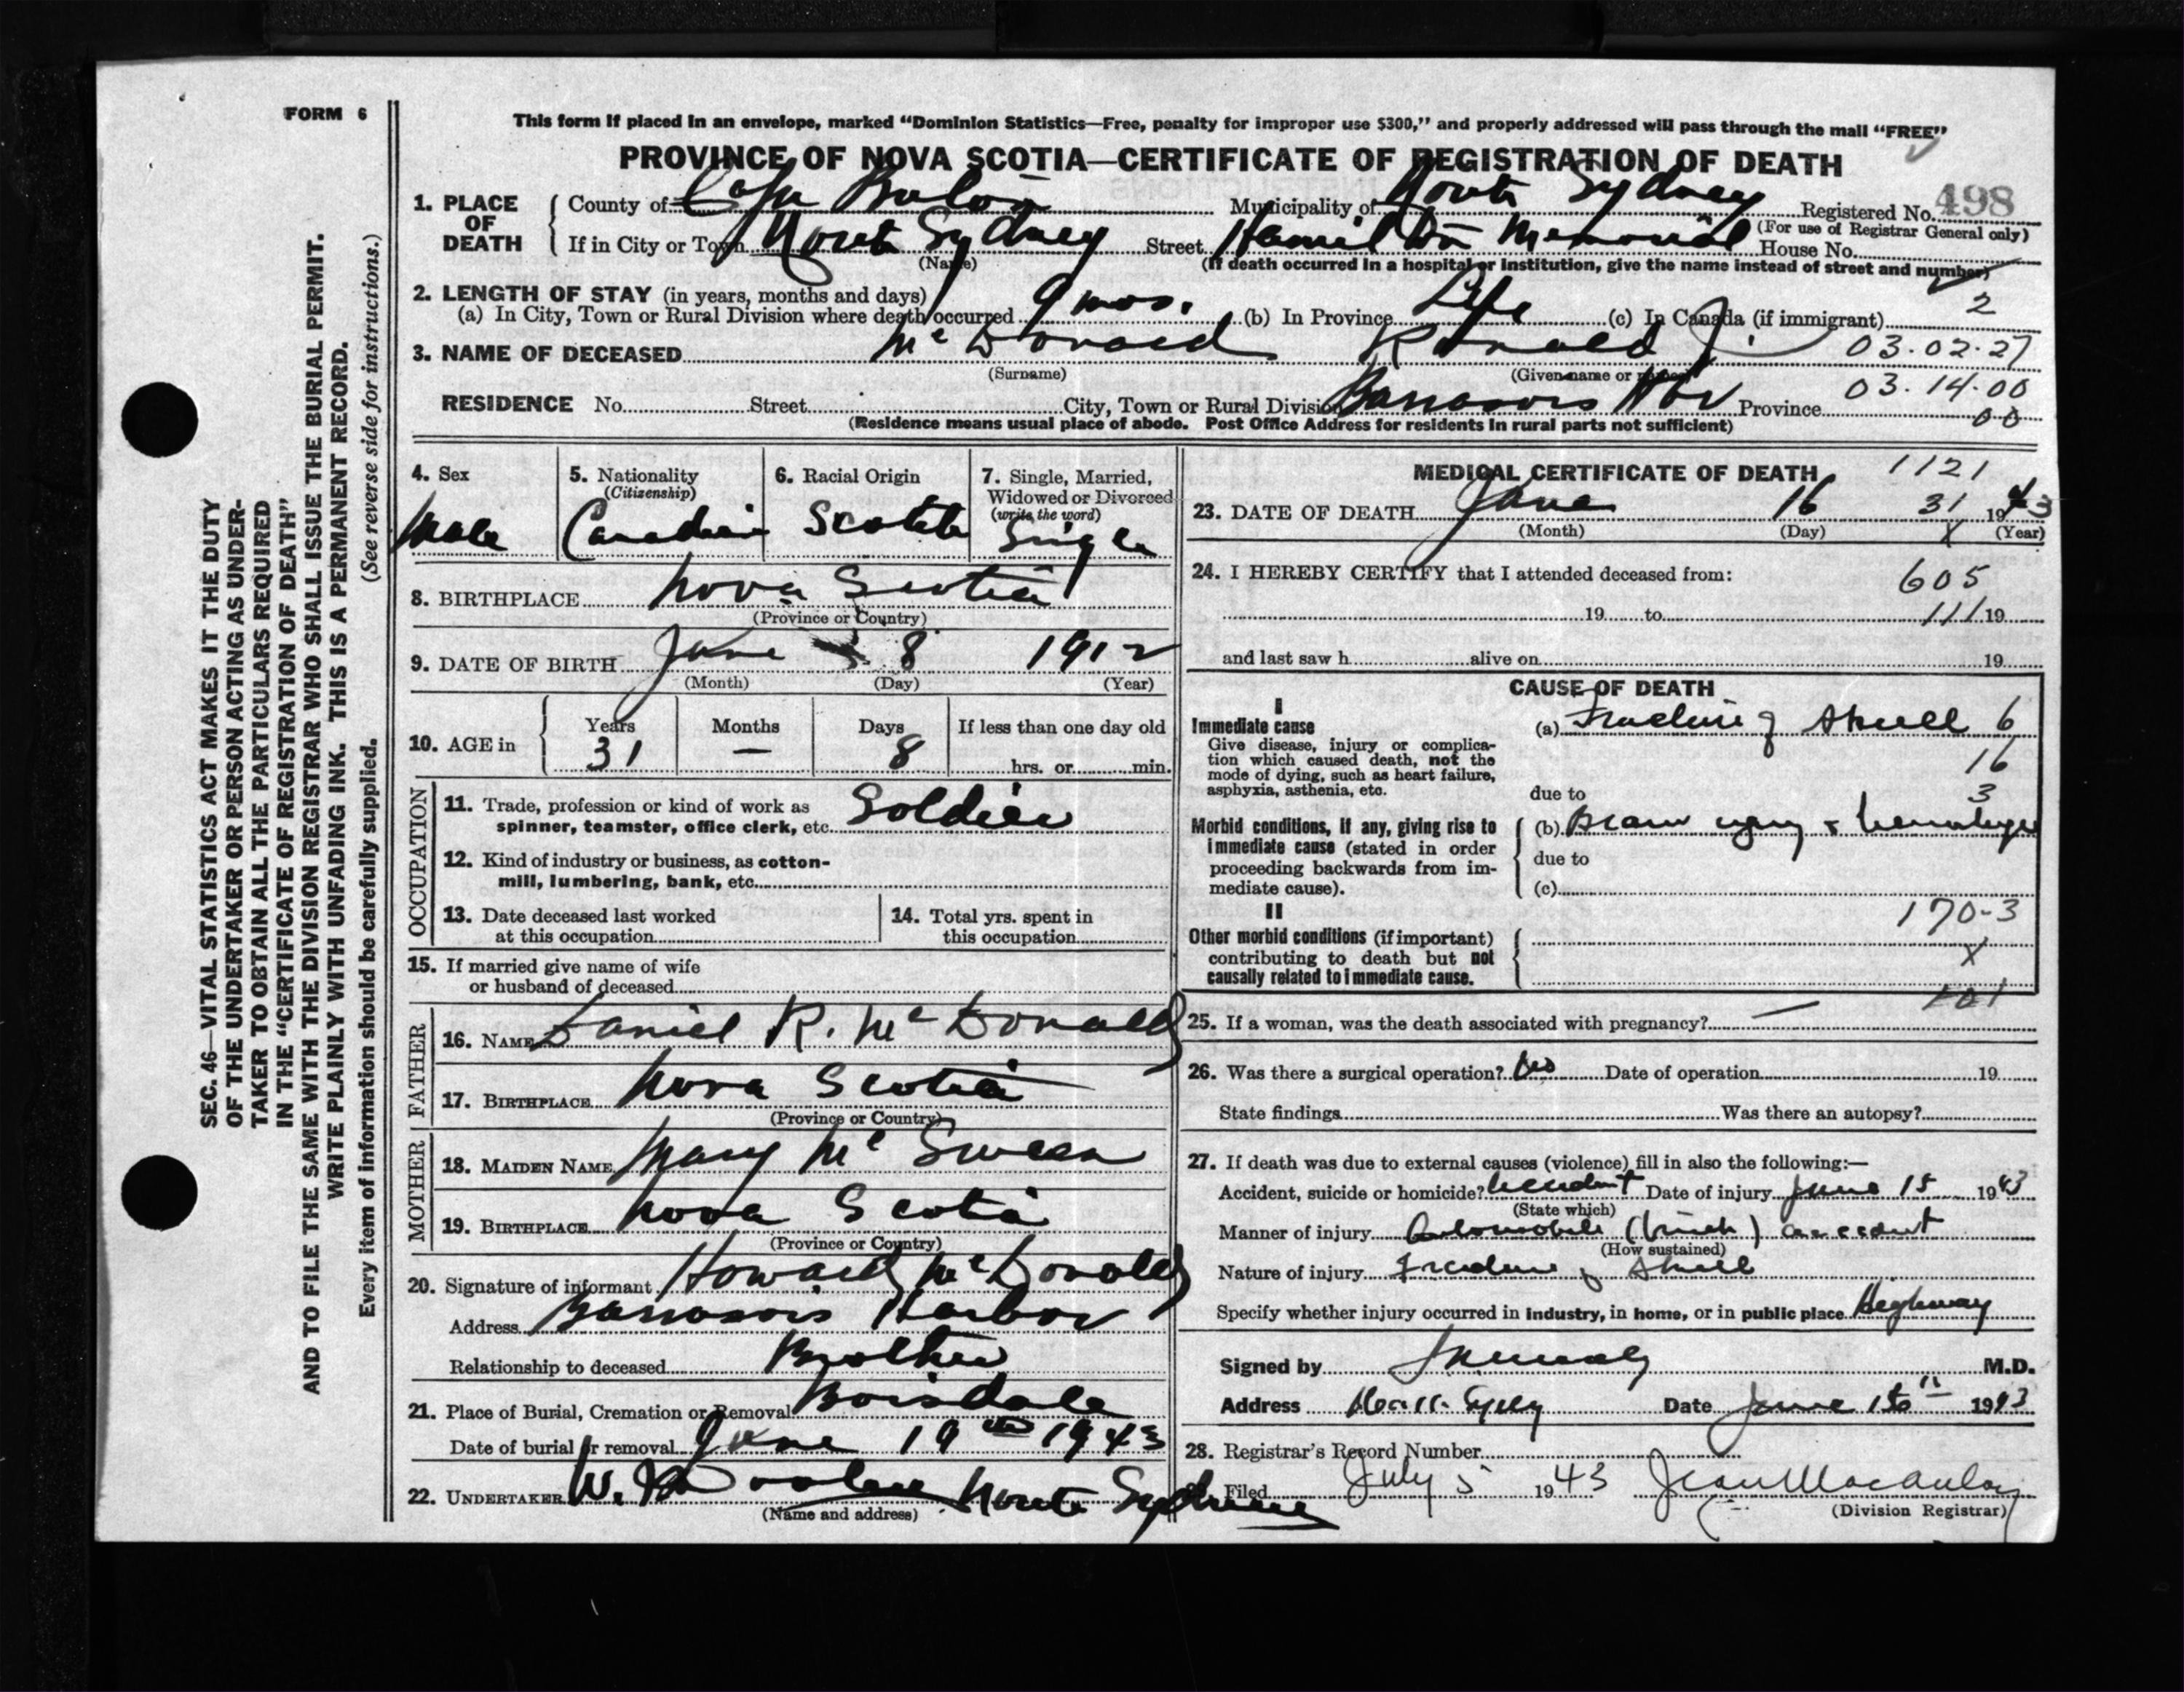 FORM 6
This form if placed in an envelope, marked “Dominion Statistics—Free, penalty for improper use $300,” and properly addressed will pass through the mail “FREE”
PROVINCE OF NOVA SCOTIA—CERTIFICATE OF REGISTRATION OF DEATH
SEC. 46—VITAL STATISTICS ACT MAKES IT THE DUTY
OF THE UNDERTAKER OR PERSON ACTING AS UNDER-
TAKER TO OBTAIN ALL THE PARTICULARS REQUIRED
IN THE “CERTIFICATE OF REGISTRATION OF DEATH”
AND TO FILE THE SAME WITH THE DIVISION REGISTRAR WHO SHALL ISSUE THE BURIAL PERMIT.
WRITE PLAINLY WITH UNFADING INK. THIS IS A PERMANENT RECORD.
Every item of information should be carefully supplied. (See reverse side for instructions.)
1. PLACE OF DEATH County of Cape Breton Municipality of North Sydney Registered No. 498
(For use of Registrar General only)
If in City or Town North Sydney Street Hamilton Memorial House No.
(Name) (If death occurred in a hospital or institution, give the name instead of street and number)
2. LENGTH OF STAY (in years, months and days)
(a) In City, Town or Rural Division where death occurred 9 mos. (b) In Province Life (c) In Canada (if immigrant) 2
3. NAME OF DECEASED McDonald Ronald J. 03.02.27
(Surname) (Given name or names)
03.14.00
RESIDENCE No. Street City, Town or Rural Division Barrasois Hbr Province 00
(Residence means usual place of abode. Post Office Address for residents in rural parts not sufficient)
4. Sex Male
5. Nationality (Citizenship) Canadian
6. Racial Origin Scotch
7. Single, Married, Widowed or Divorced (write the word) Single
8. BIRTHPLACE Nova Scotia
(Province or Country)
9. DATE OF BIRTH June 8 1912
(Month) (Day) (Year)
10. AGE in Years 31 Months — Days 8 If less than one day old hrs. or min.
OCCUPATION
11. Trade, profession or kind of work as spinner, teamster, office clerk, etc. Soldier
12. Kind of industry or business, as cotton-
mill, lumbering, bank, etc.
13. Date deceased last worked at this occupation
14. Total yrs. spent in this occupation
15. If married give name of wife
or husband of deceased
FATHER
16. NAME Daniel R. McDonald
17. BIRTHPLACE Nova Scotia
(Province or Country)
MOTHER
18. MAIDEN NAME Mary McSween
19. BIRTHPLACE Nova Scotia
(Province or Country)
20. Signature of informant Howard McDonald
Address Barrasois Harbor
Relationship to deceased Brother
21. Place of Burial, Cremation or Removal Boisdale
Date of burial or removal June 19th 1943
22. UNDERTAKER W. North Sydney
(Name and address)
MEDICAL CERTIFICATE OF DEATH 1121
23. DATE OF DEATH June 16 31 1943
(Month) (Day) X (Year)
24. I HEREBY CERTIFY that I attended deceased from: 605
19 to 111 19
and last saw h alive on 19
CAUSE OF DEATH
I
Immediate cause
Give disease, injury or complica-
tion which caused death, not the
mode of dying, such as heart failure,
asphyxia, asthenia, etc.
(a) Fracture of Skull 6
16
due to 3
Morbid conditions, if any, giving rise to
immediate cause (stated in order
proceeding backwards from im-
mediate cause).
(b) Brain injury & hemorrhage
due to
(c)
II
Other morbid conditions (if important)
contributing to death but not
causally related to immediate cause.
170-3
X
101
25. If a woman, was the death associated with pregnancy? —
26. Was there a surgical operation? No Date of operation 19
State findings Was there an autopsy?
27. If death was due to external causes (violence) fill in also the following:—
Accident, suicide or homicide? Accident Date of injury June 15 1943
(State which)
Manner of injury Automobile (truck) accident
(How sustained)
Nature of injury Fracture of Skull
Specify whether injury occurred in industry, in home, or in public place Highway
Signed by M.D.
Address Date June 1943
28. Registrar's Record Number
Filed July 5 1943 Jean Macaulay
(Division Registrar)